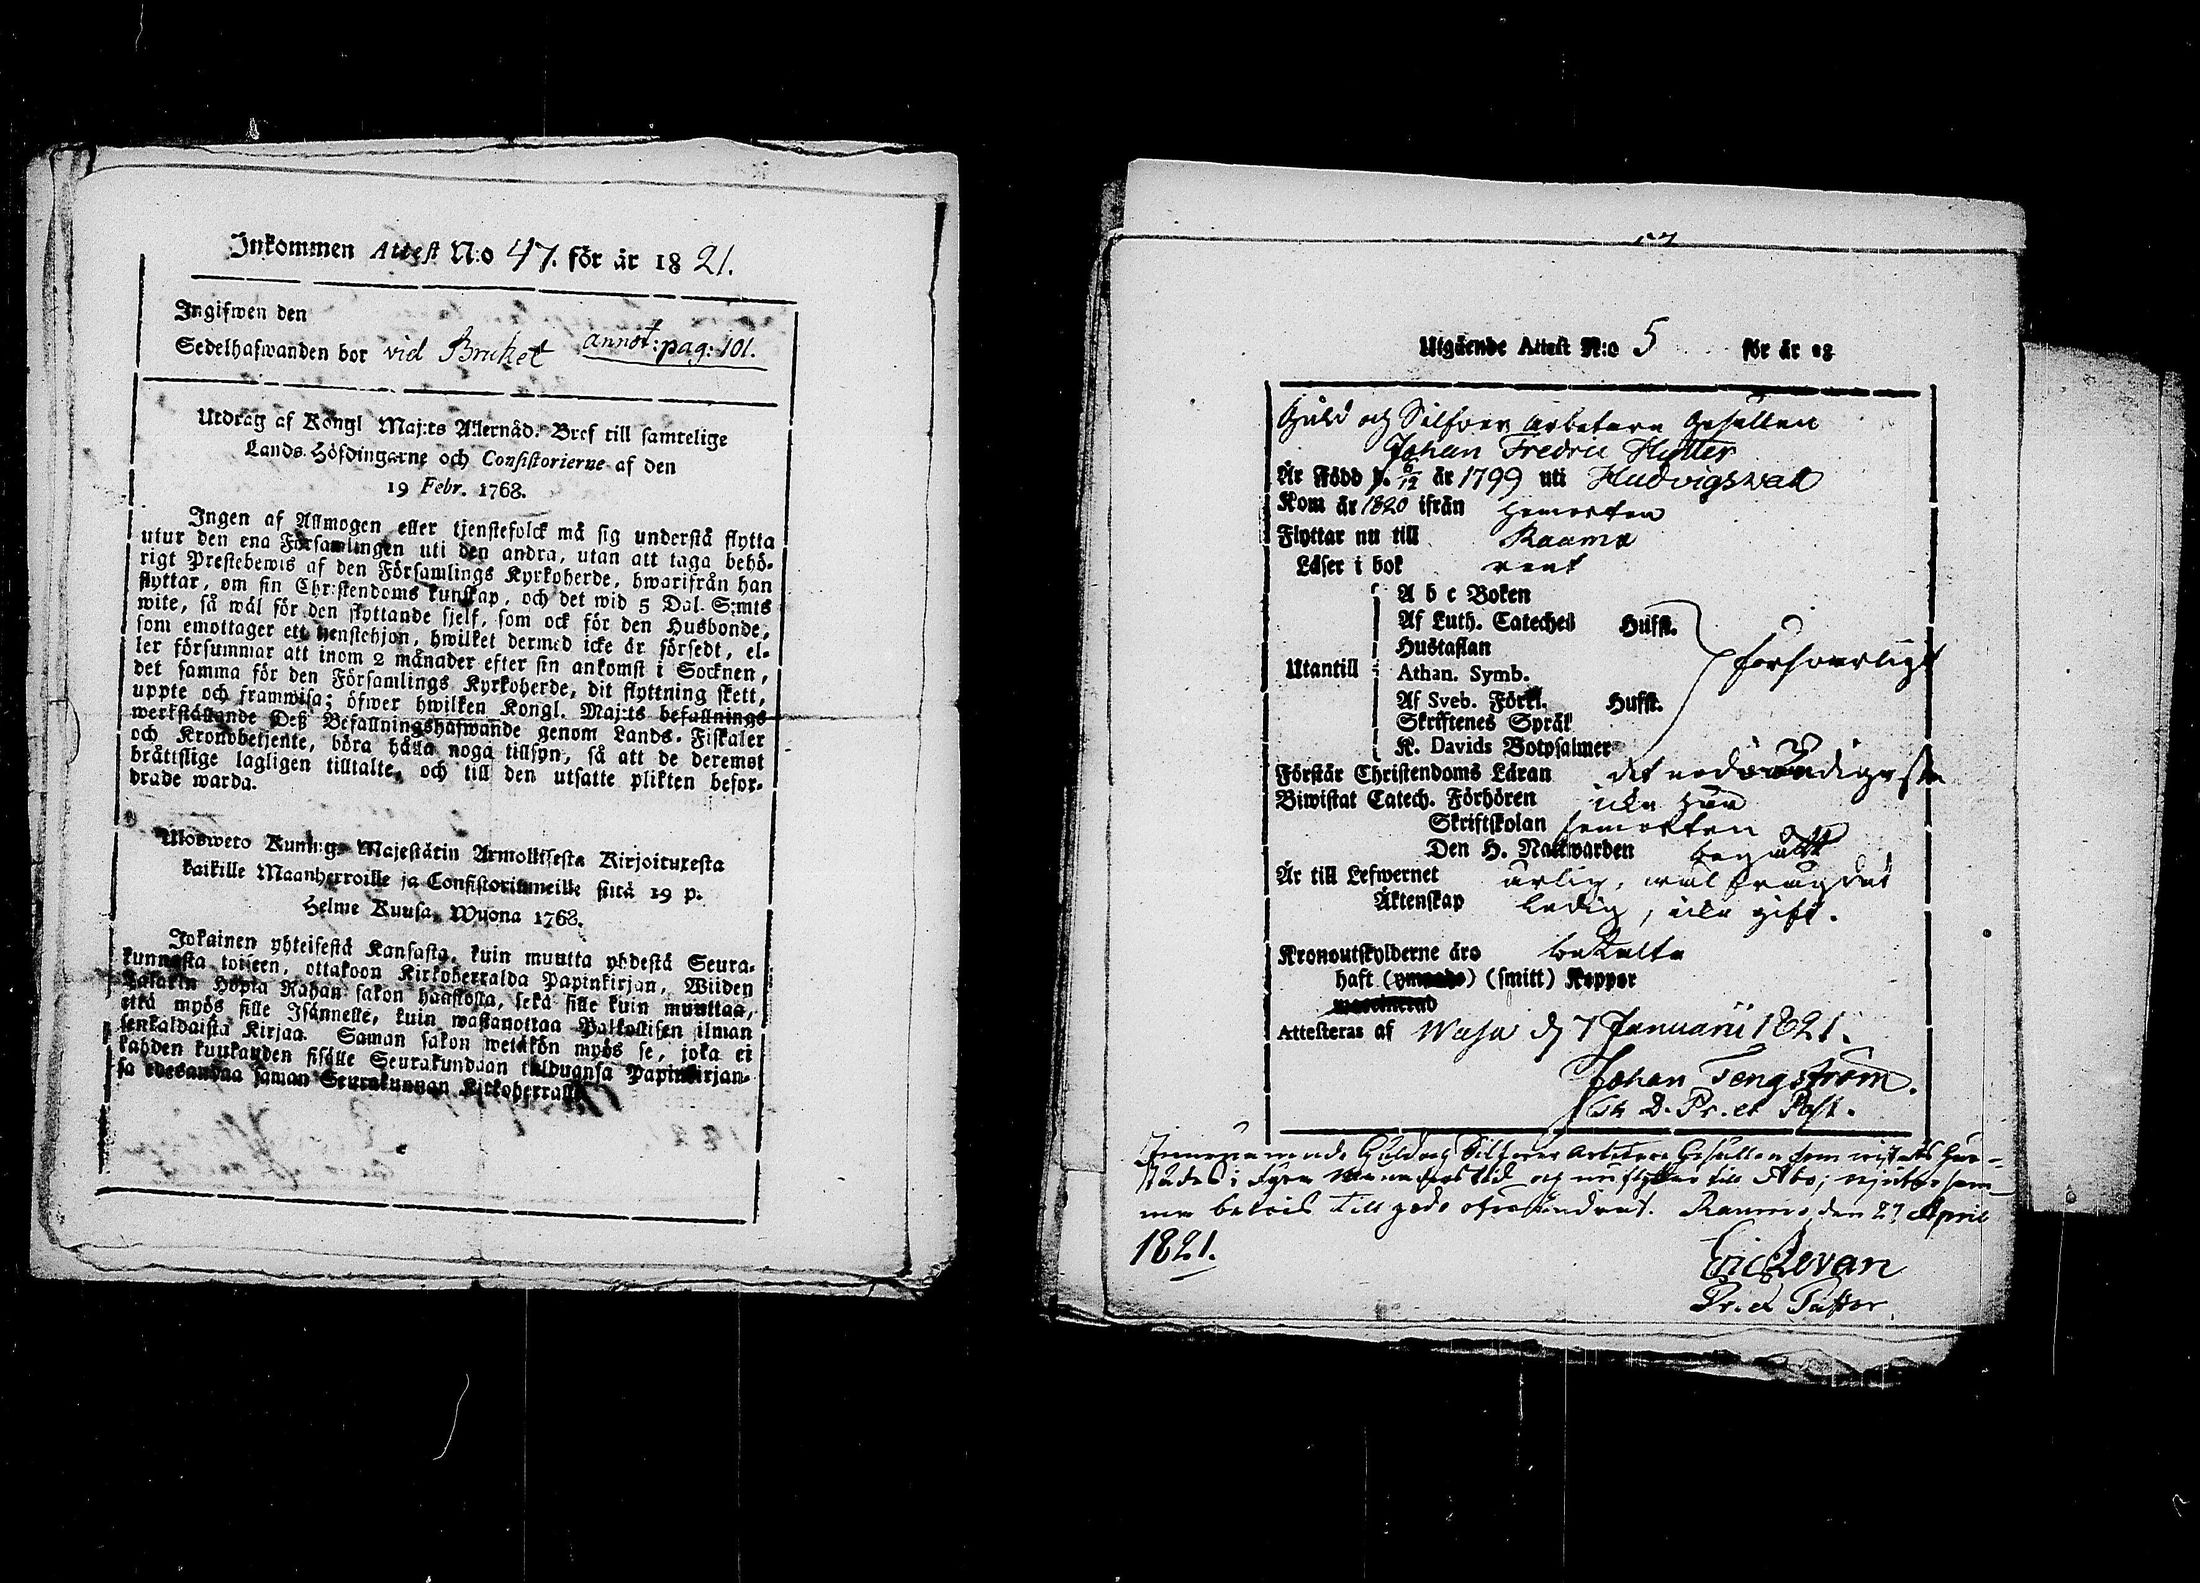 Inkommen Attest N:o 47. för år 18 21.
Ingifwen den
Sedelhafwanden bor vid Bruket annot: pag: 101.
Utdrag af Kongl Maj:ts Allernåd. Bref till samtelige
Lands-Höfdingarne och Consistorierne af den
19 Febr. 1768.
Ingen af Allmogen eller tjenstefolck må sig understå flytta
utur den ena Församlingen uti den andra, utan att taga behö-
rigt Prestebewis af den Församlings Kyrkoherde, hwarifrån han
flyttar, om sin Christendoms kunskap, och det wid 5 Dal. S:mts
wite, så wäl för den flyttande sjelf, som ock för den Husbonde,
som emottager ett tjenstehjon, hwilket dermed icke är försedt, el-
ler försummar att inom 2 månader efter sin ankomst i Socknen,
det samma för den Församlings Kyrkoherde, dit flyttning skett,
uppte och framwisa; öfwer hwilken Kongl. Maj:ts befallnings
werkställande Deß Befallningshafwande genom Lands-Fiskaler
och Kronobetjente, böra hålla noga tillsyn, så att de deremot
bråttslige lagligen tilltalte, och till den utsatte plikten befor-
drade warda.
Uloswero Kuning. Majestätin Armollisesta Kirjoituxesta
kaikille Maanherroille ja Consistoriumeille siitä 19 p.
Helme Kuusa, Wuona 1768.
Jokainen yhteisestä Kansasta, kuin muutta yhdestä Seura-
kunnasta toiseen, ottakoon Kirkoherralda Papinkirjan, Wiiden
Talarin Hopia Rahan sakon haastosta, sekä sille kuin muuttaa,
että myös sille Isännelle, kuin wastanottaa Palkollisen ilman
senkaldaista Kirjaa. Saman sakon wetäkön myös se, joka ei
kahden kuukauden sisälle Seurakundaan tulduansa Papinkirjan-
sa edesandaa saman Seurakunnan Kirkoherralle.
Utgående Attest N:o 5 för år 18
Guld och Silfver Arbetare Gesällen
Johan Fredric Hytter
Är Född d. 6/12 år 1799 uti Hudvigswall
Kom år 1820 ifrån hemorten
Flyttar nu till Raumo
Läser i bok rent
A b c Boken
Af Luth. Cateches Hufst.
Hustaflan
Utantill Athan. Symb. försvarligt
Af Sveb. Förkl. Hufst.
Skriftenes Språk
K. Davids Botpsalmer
Förstår Christendoms Läran det nödvändigaste
Biwistat Catech. Förhören icke här
Skriftskolan hemorten
Den H. Nattwarden begått
Är till Lefwernet ärlig, wäl frägdat
Äktenskap Ledig, icke gift.
Kronoutskylderne äro betalte
haft (smitt) Koppor
Attesteras af Wasa d 7 Januarii 1821.
Johan Tengström.
Th. D. Pr. et Past.
Innenämnde Guld och Silfver Arbetare Gesällen som vistats här-
städes i fyra månaders tid och nu flyttar till Åbo, njuter sam-
ma betvis till godo oförändrat. Raumo, den 27 April
1821.
Eric Levan
Pr. et Pastor.